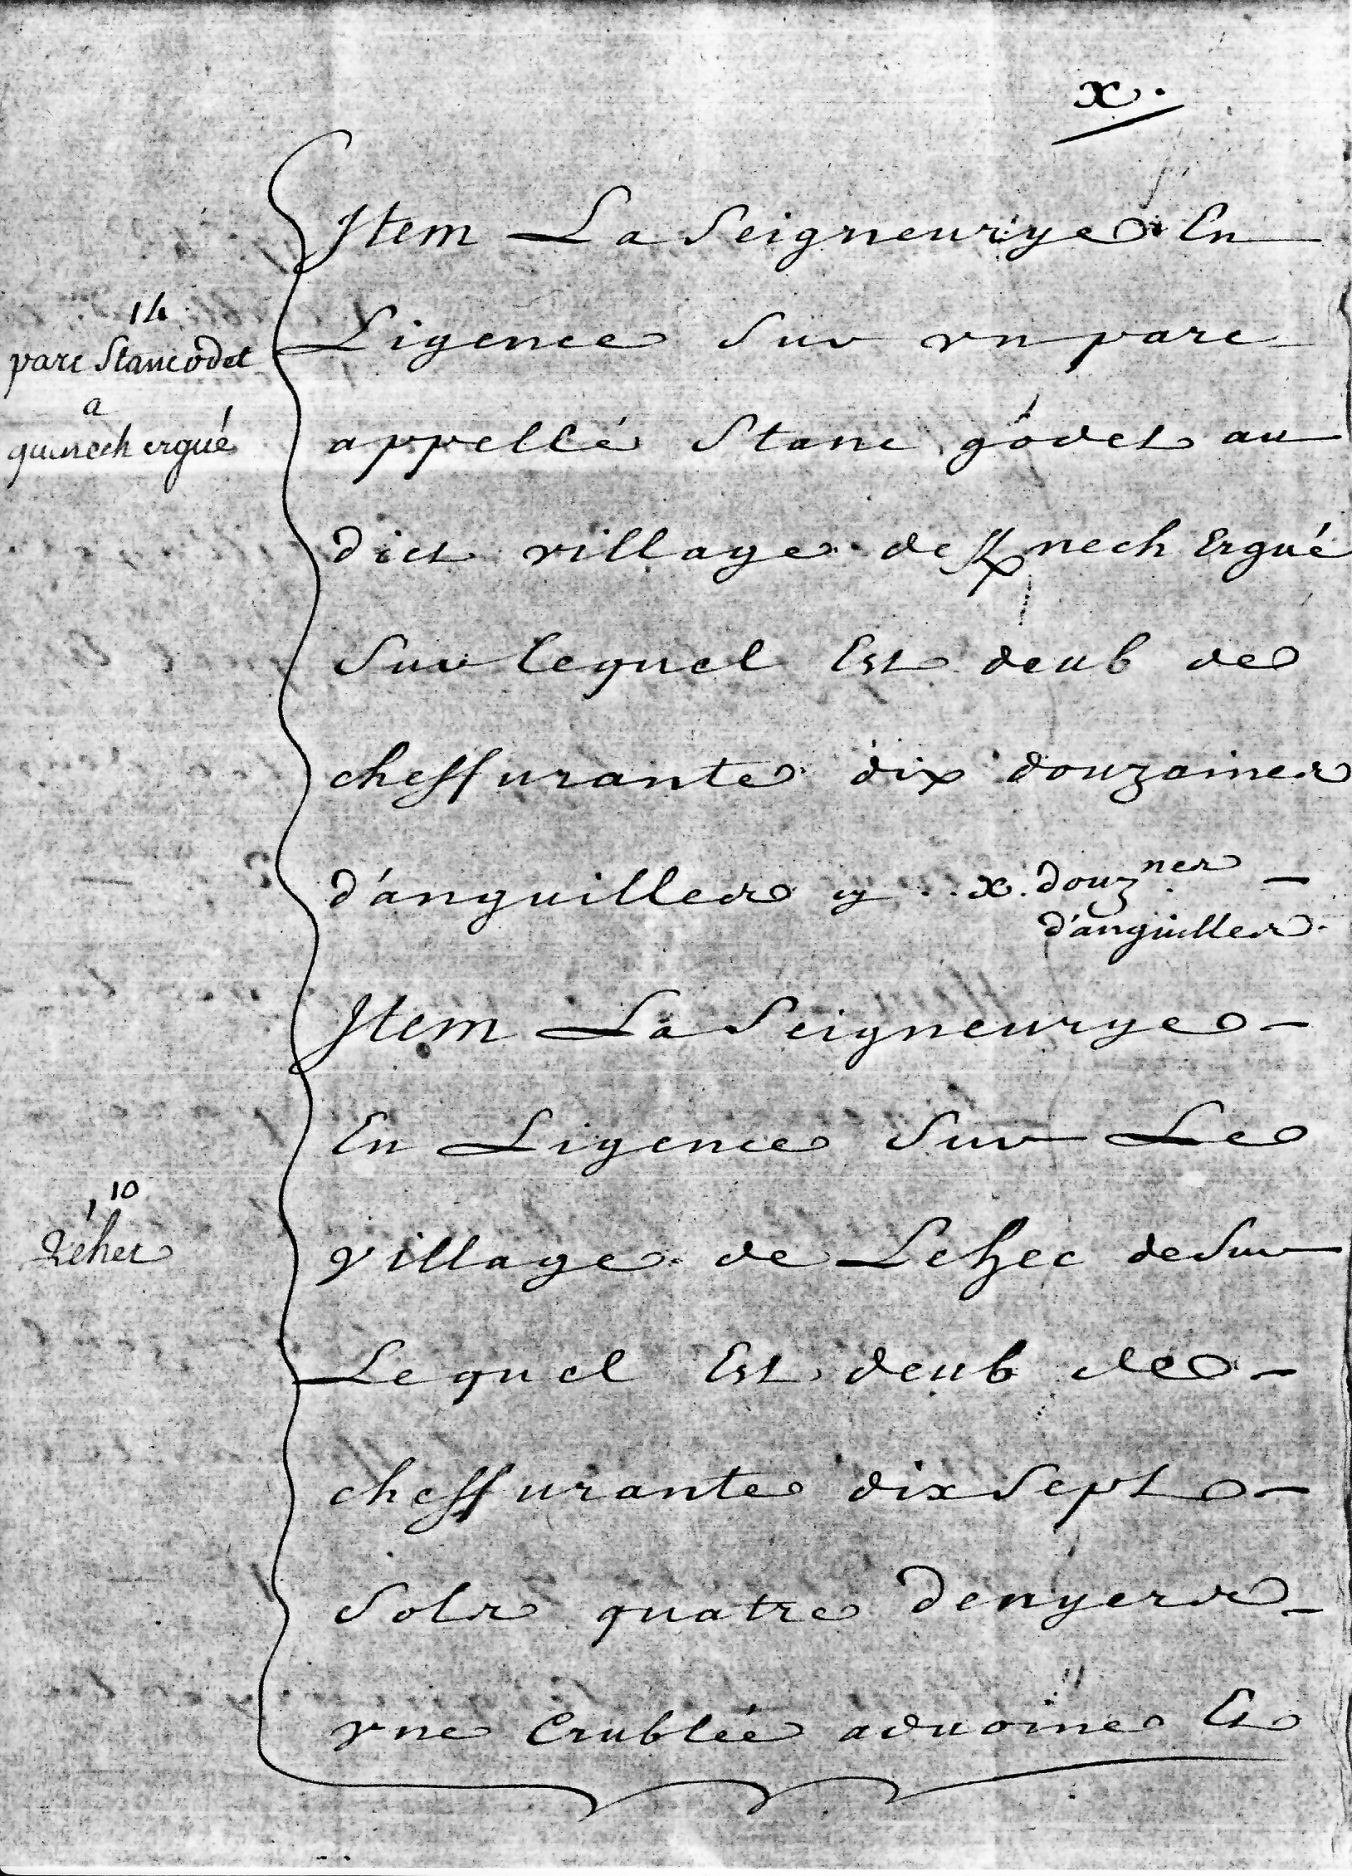 x.
Item La Seigneurye En
Ligence Sur vn parc
14
parc Stancodet
a
quenech ergué
appellé Stanc godet au
dict village de Knech Ergué
Sur lequel Est deub de
cheffurante dix douzaines
d'anguilles cy .. x. douz.nes
d'anguilles.
Item La Seigneurye
En Ligence Sur Le
10
village de Lehec desur
Lequel Est deub de
cheffurante dix Sept
Solz quatre denyers
vne Crublée aduoine Et